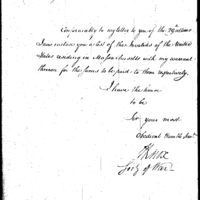 Conformably to my letter to you of the 29th ultimo
I now enclose you a list of the Invalids of the United
States residing in Massachusetts with my warrant
thereon for the sums to be paid to them respectively.
I have the honor
to be
Sir your most
Obedient Humble Servt.
H Knox
Secy of War